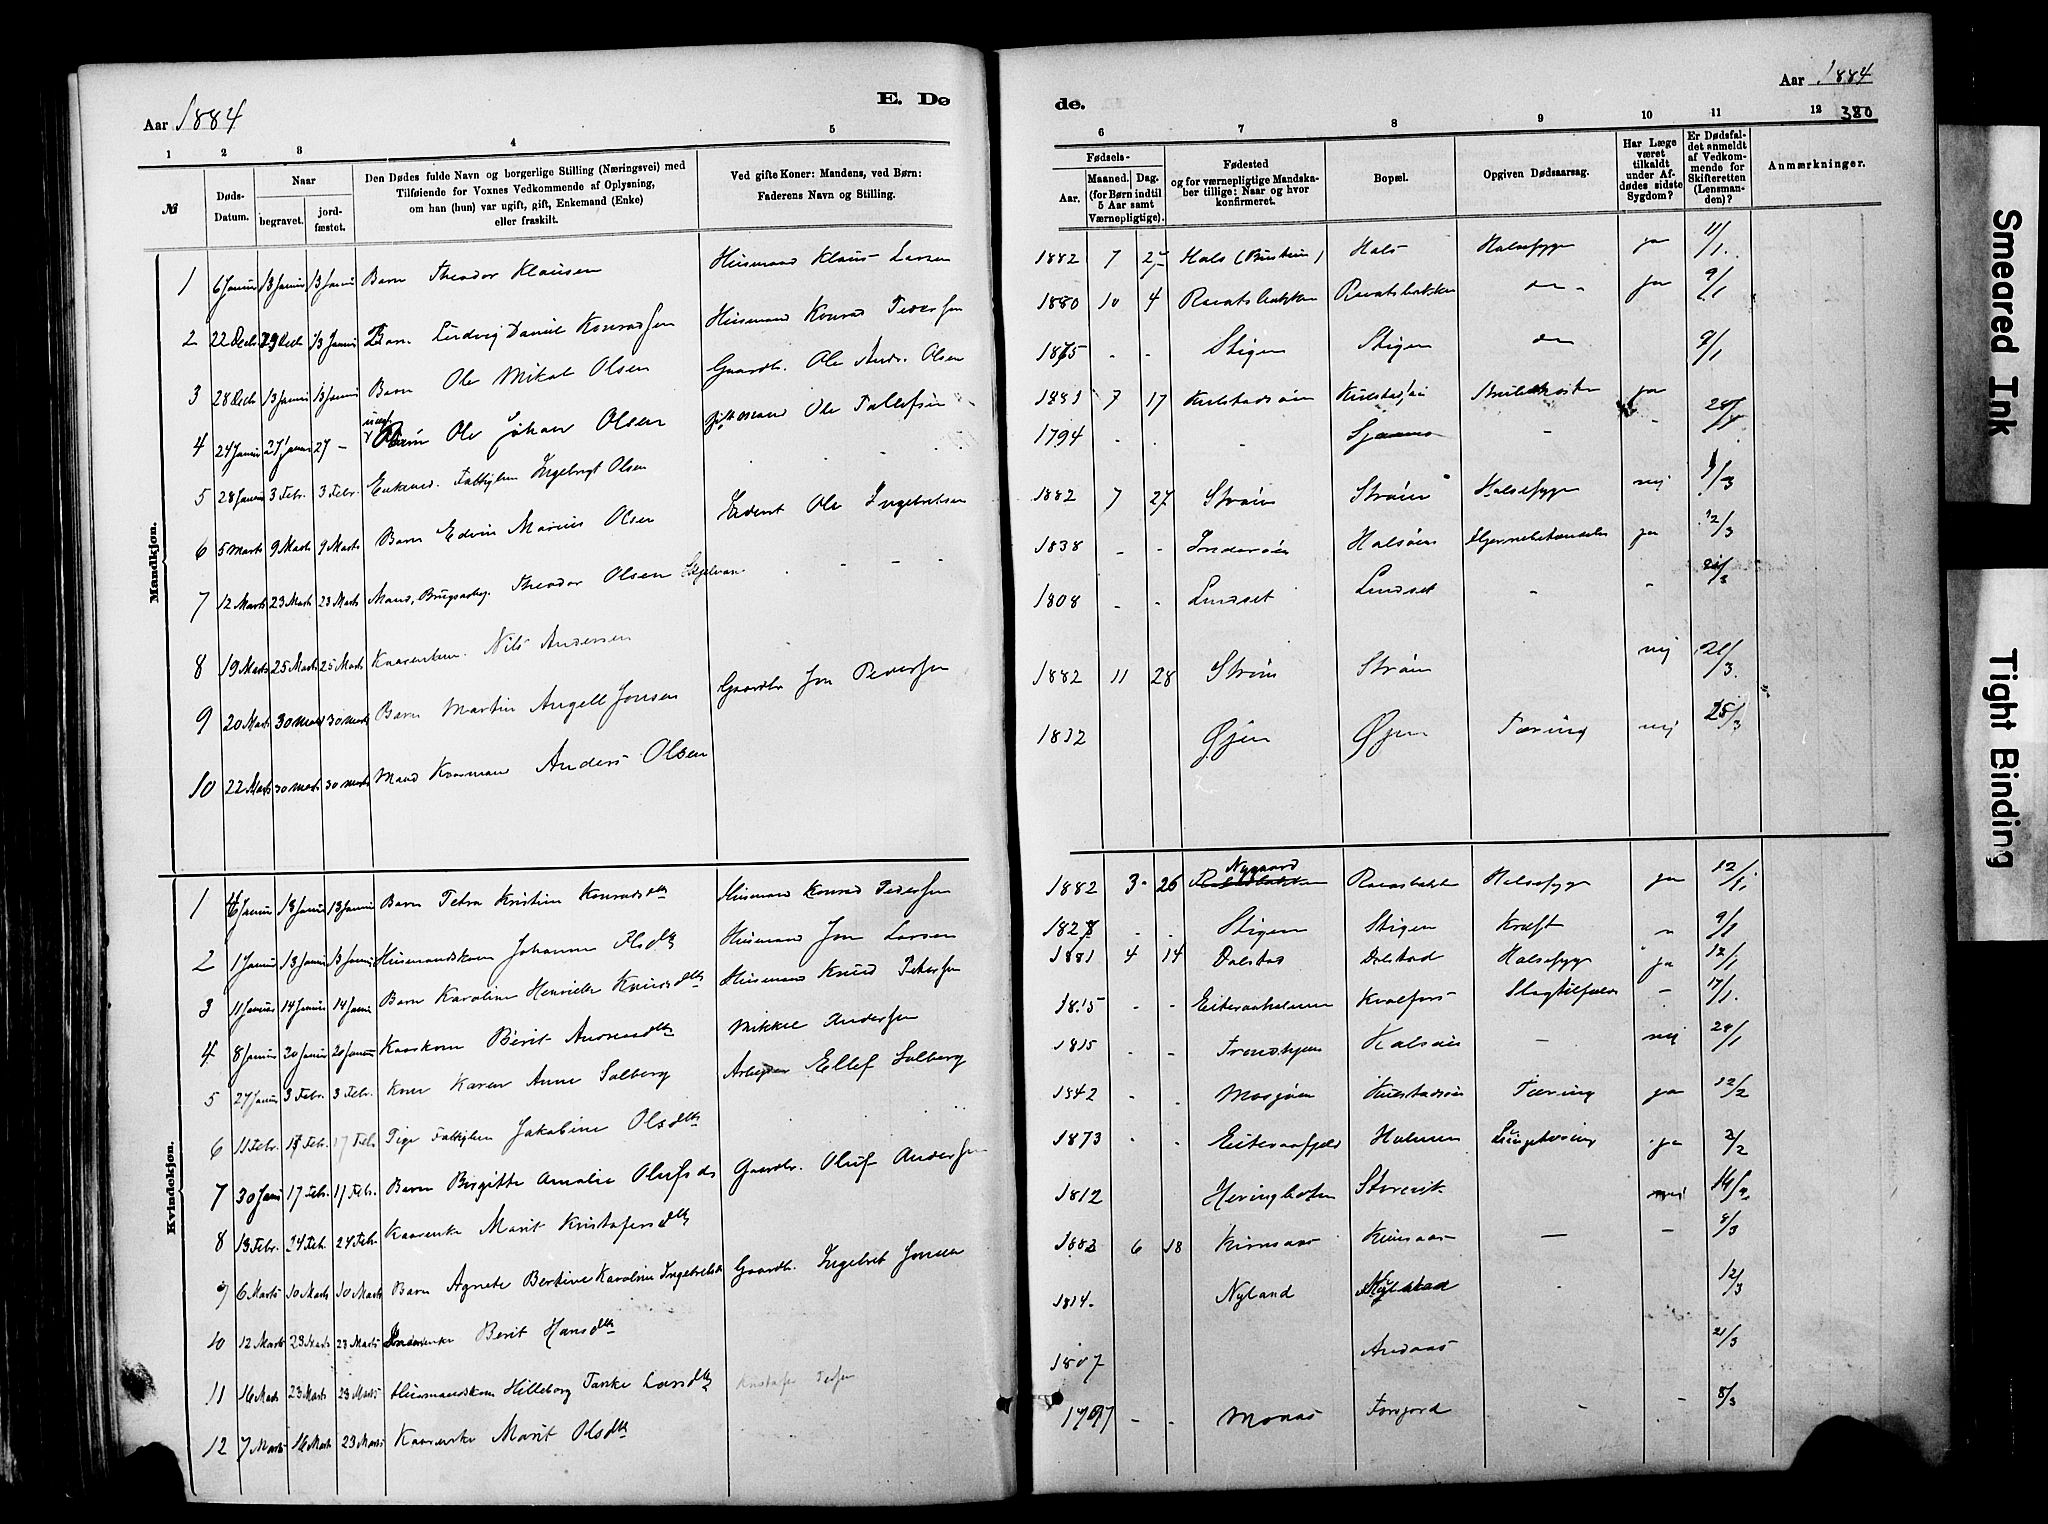 Aar 1884
E. Dø
1 2 3 4 5
№
Døds-Datum.
Naar
begravet.
jord-fæstet.
Den Dødes fulde Navn og borgerlige Stilling (Næringsvei) med
Tilføiende for Voxnes Vedkommende af Oplysning,
om han (hun) var ugift, gift, Enkemand (Enke)
eller fraskilt.
Ved gifte Koner: Mandens, ved Børn:
Faderens Navn og Stilling.
Mandkjøn.
1 6 Januar 13 Januar 13 Januar Barn Theodor Klausen Husmand Klaus Larsen
2 22 Decb 29 Decb 13 Januar Barn Ludvig Daniel Konradsen Husmand Konrad Pedersen
3 28 Decb 13 Januar 13 Januar Barn Ole Mikal Olsen Gaardb. Ole Andr. Olsen
4 24 Januar 27 Januar 27 - Ole Johan Olsen gift Mand Ole Tollefsen
5 28 Januar 3 Febr. 3 Febr. Enkemd. Fattiglem Ingebrigt Olsen
6 5 Marts 9 Marts 9 Marts Barn Edvin Marius Olsen Ole Ingebretsen
7 12 Marts 23 Marts 23 Marts Mand, Theodor Olsen
8 19 Marts 25 Marts 25 Marts Nils Andersen
9 20 Marts 30 Marts 30 Marts Barn Martin Angell Jonsen Gaardbr Jon Pedersen
10 22 Marts 30 Marts 30 Marts Mand Kaarmand Anders Olsen
Kvindekjøn.
1 6 Januar 13 Januar 13 Januar Barn Petra Kristine Konradsdtr Husmand Konrad Pedersen
2 1 Januar 13 Januar 13 Januar Husmandskone Johanna Olsdtr Husmand Jon Larsen
3 11 Januar 14 Januar 14 Januar Barn Karoline Henriette Knudsdtr Husmand Knud Petersen
4 8 Januar 20 Januar 20 Januar Kaarkone Berit Andreasdtr Mikkel Andersen
5 27 Januar 3 Febr. 3 Febr. Kone Karen Anne Solberg Arbeider Ellef Solberg
6 11 Febr. 17 Febr. 17 Febr. Pige Fattiglem Jakobine Olsdtr
7 30 Janr 17 Febr. 17 Febr. Barn Birgitte Amalie Olufsdtr Gaardbr. Oluf Andersen
8 13 Febr. 24 Febr. 24 Febr. Kaarenke Marit Kristofersdtr
9 6 Marts 10 Marts 10 Marts Barn Agnete Bertine Karoline Ingebretsdtr Gaardb. Ingebret Jonsen
10 12 Marts 23 Marts 23 Marts Berit Hansdtr
11 16 Marts 23 Marts 23 Marts Husmandskone Hilleborg Tanke Larsdtr Kristofer
12 7 Marts 16 Marts 23 Marts Kaarenke Marit Olsdtr
de.
Aar 1884
380
6 7 8 9 10 11 12
Fødsels-
Aar.
Maaned. Dag.
(for Børn indtil
5 Aar samt
Værnepligtige).
Fødested
og for værnepligtige Mandska-
ber tillige: Naar og hvor
konfirmeret.
Bopæl.
Opgiven Dødsaarsag.
Har Læge
været
tilkaldt
under Af-
dødes sidste
Sygdom?
Er Dødsfal-
det anmeldt
af Vedkom-
mende for
Skifteretten
(Lensman-
den)?
Anmærkninger.
1882 7 Hals Hals Halssyge ja 11/1.
1880 10 4 do - ja 9/1
1875 - - Stigen Stigen do 9/1
1881 7 17 Kulstadsøen Kulstadsøen ja
1794 - - - -
1882 7 27 Strøm Strøm Halssyge nej 9/3
1838 - - Inderøen Halsøen Hjernebetændelse ja 12/3
1808 - - Lundset Lundset - -
1882 11 28 Strøm Strøm nej 21/3.
1832 Øjen Øjen Tæring nej 25/3
1882 3 26 Nygaard Halssyge ja 12/1
Stigen Stigen Kræft " 9/1
1881 4 14 Dolstad Dolstad Halssyge ja 12/1
1815 - - Eiteraaholmen Kvalfors Slagtilfælde - 17/1.
1815 - - Trondhjem Halsøen - nej 28/1
1842 - - Mosjøen Kulstadsøen Tæring ja 12/2
1873 - - Eiteraafjeld Holmen Lungetæring ja 2/2
1812 Heringbotn Storevik nej 14/2
1882 6 18 Kirnsaas Kirnsaas - - 8/3
1814. Nyland - 12/3
1807 Andaas 21/3
- - Moaas Forsjord - - 8/3
Smeared Ink
Tight Binding